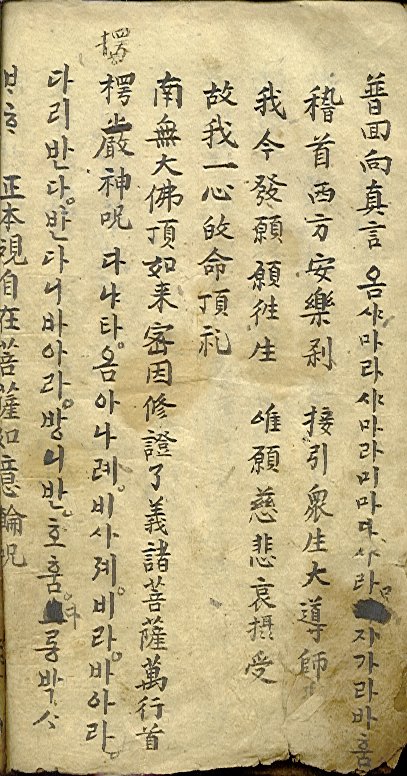 普回向真言 옴 사마라 사마라 미마다 사라 자가라바훔
稽首西方安樂刹 接引衆生大導師
我今發願願徃生 唯願慈悲哀攝受
故我一心皈命頂礼
南無大佛頂如来宻因修證了義諸菩薩萬行首
楞
楞嚴神呪 다냐타。옴 아나례。비사졔。비라。바아라。
다리반다。반다니 바아라。방니반。호훔。 룡박 ㅅ
正本観自在菩薩如意輪呪